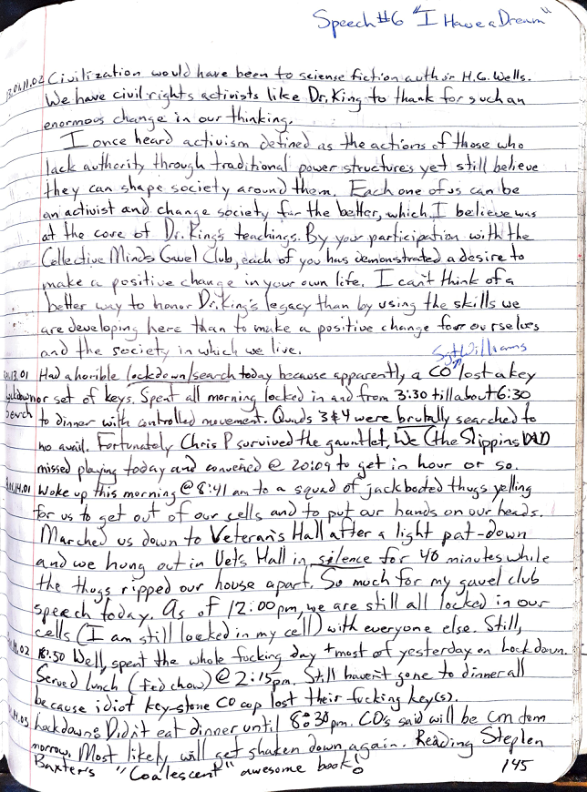 Speech #6 "I Have a Dream"
Civilization would have been to sciense fiction author H.G. Wells.
We have civil rights activists like Dr. King to thank for such an
enormous change in our thinking.
I once heard activism defined as the actions of those who
lack authority through traditional power structures yet still believe
they can shape society around them. Each one of us can be
an activist and change society for the better, which I believe was
at the core of Dr. King's teachings. By your participation with the
Collective Minds Gavel Club, each of you has demonstrated a desire to
make a positive change in your own life. I can't think of a
better way to honor Dr. King's legacy than by using the skills we
are developing here than to make a positive change for ourselves
and the society in which we live.
Sgt Williams
13.01 Had a horible lockdown/search today because apparently a CO lost a key
lockdown or set of keys. Spent all morning locked in and from 3:30 till about 6:30
search to dinner with controlled movement. Quads 3 & 4 were brutally searched to
no avail. Fortunately Chris P survived the gauntlet. We (the Slippins DND
missed playing today and convened @ 20:09 to get in hour or so.
14.01 Woke up this morning @ 8:41 am to a squad of jackbooted thugs yelling
for us to get out of our cells and to put our hands on our heads.
Marched us down to Veteran's Hall after a light pat-down
and we hung out in Vet's Hall in silence for 40 minutes while
the thugs ripped our house apart. So much for my gavel club
speech today. As of 12:00 pm, we are still all locked in our
cells (I am still locked in my cell) with everyone else. Still,
.02 18:50 Well, spent the whole fucking day + most of yesterday on lockdown.
Served lunch (fed chow) @ 2:15 pm. Still haven't gone to dinner all
because idiot key-stone CO cop lost their fucking key(s).
.03 Lockdown: Didn't eat dinner until 8:30 pm. CO's said will be cm dom
morrow. Most likely will get shaken down again. Reading Stephen
Baxter's "Coalescent" awesome book!
145